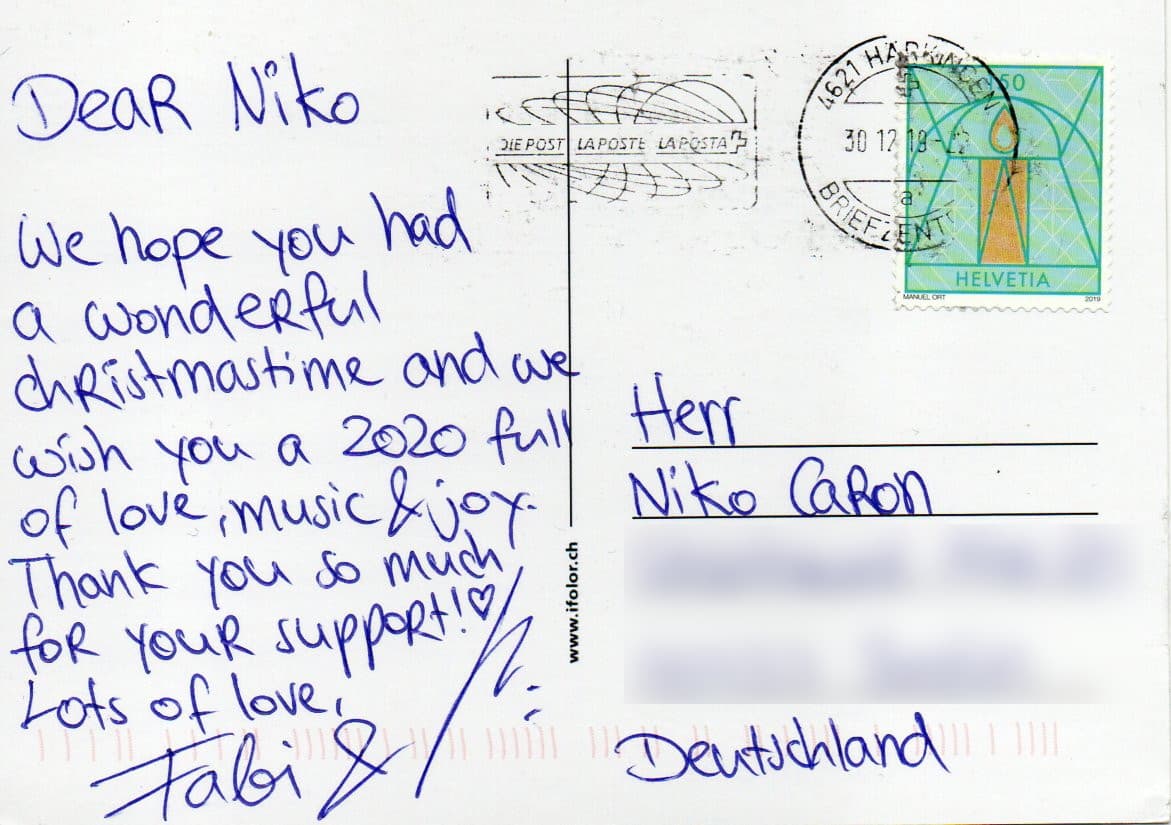 Dear Niko
We hope you had
a wonderful
christmastime and we
wish you a 2020 full
of love, music & joy.
Thank you so much
for your support! ♡
Lots of love,
Fabi &
DIE POST LA POSTE LA POSTA
4621 HÄRKINGEN
30 12 19-22
a
BRIEFZENT
50
HELVETIA
MANUEL ORT
2019
www.ifolor.ch
Herr
Niko Caron
Deutschland